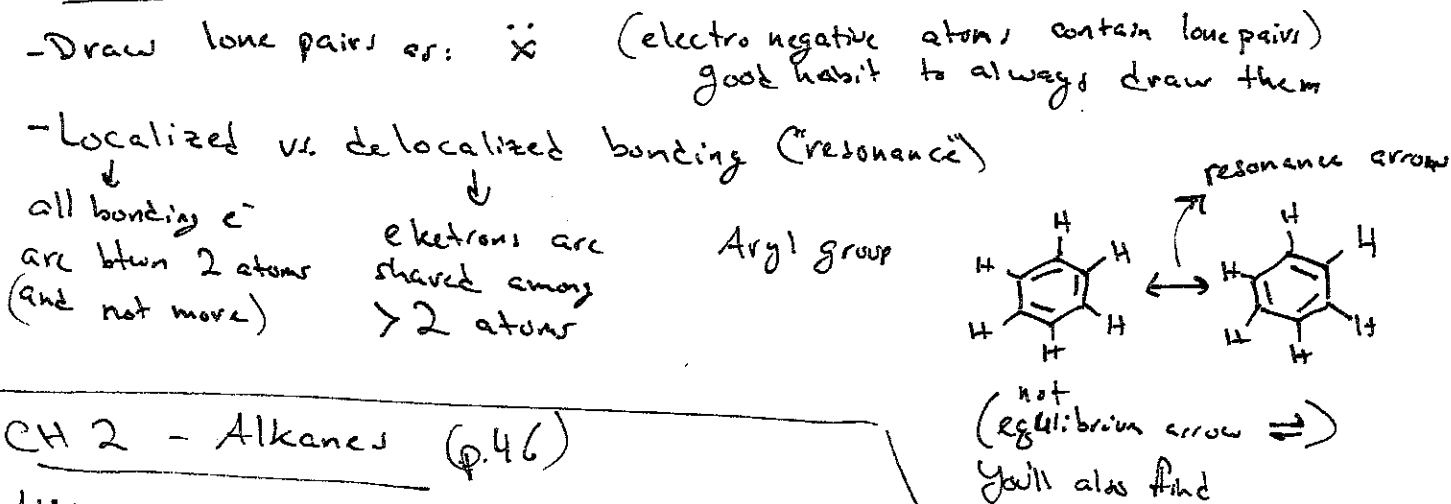 -Draw lone pairs as: ẍ (electro negative atoms contain lone pairs)
good habit to always draw them
-Localized vs. delocalized bonding ("resonance")
↓ ↓
all bonding e⁻
are btwn 2 atoms
(and not more)
elketrons are
shared among
>2 atoms
Aryl group
resonance arrow
H H H H H H
↔
H H H H H H
(not
equilibrium arrow ⇌)
You'll also find
CH 2 - Alkanes (p.46)